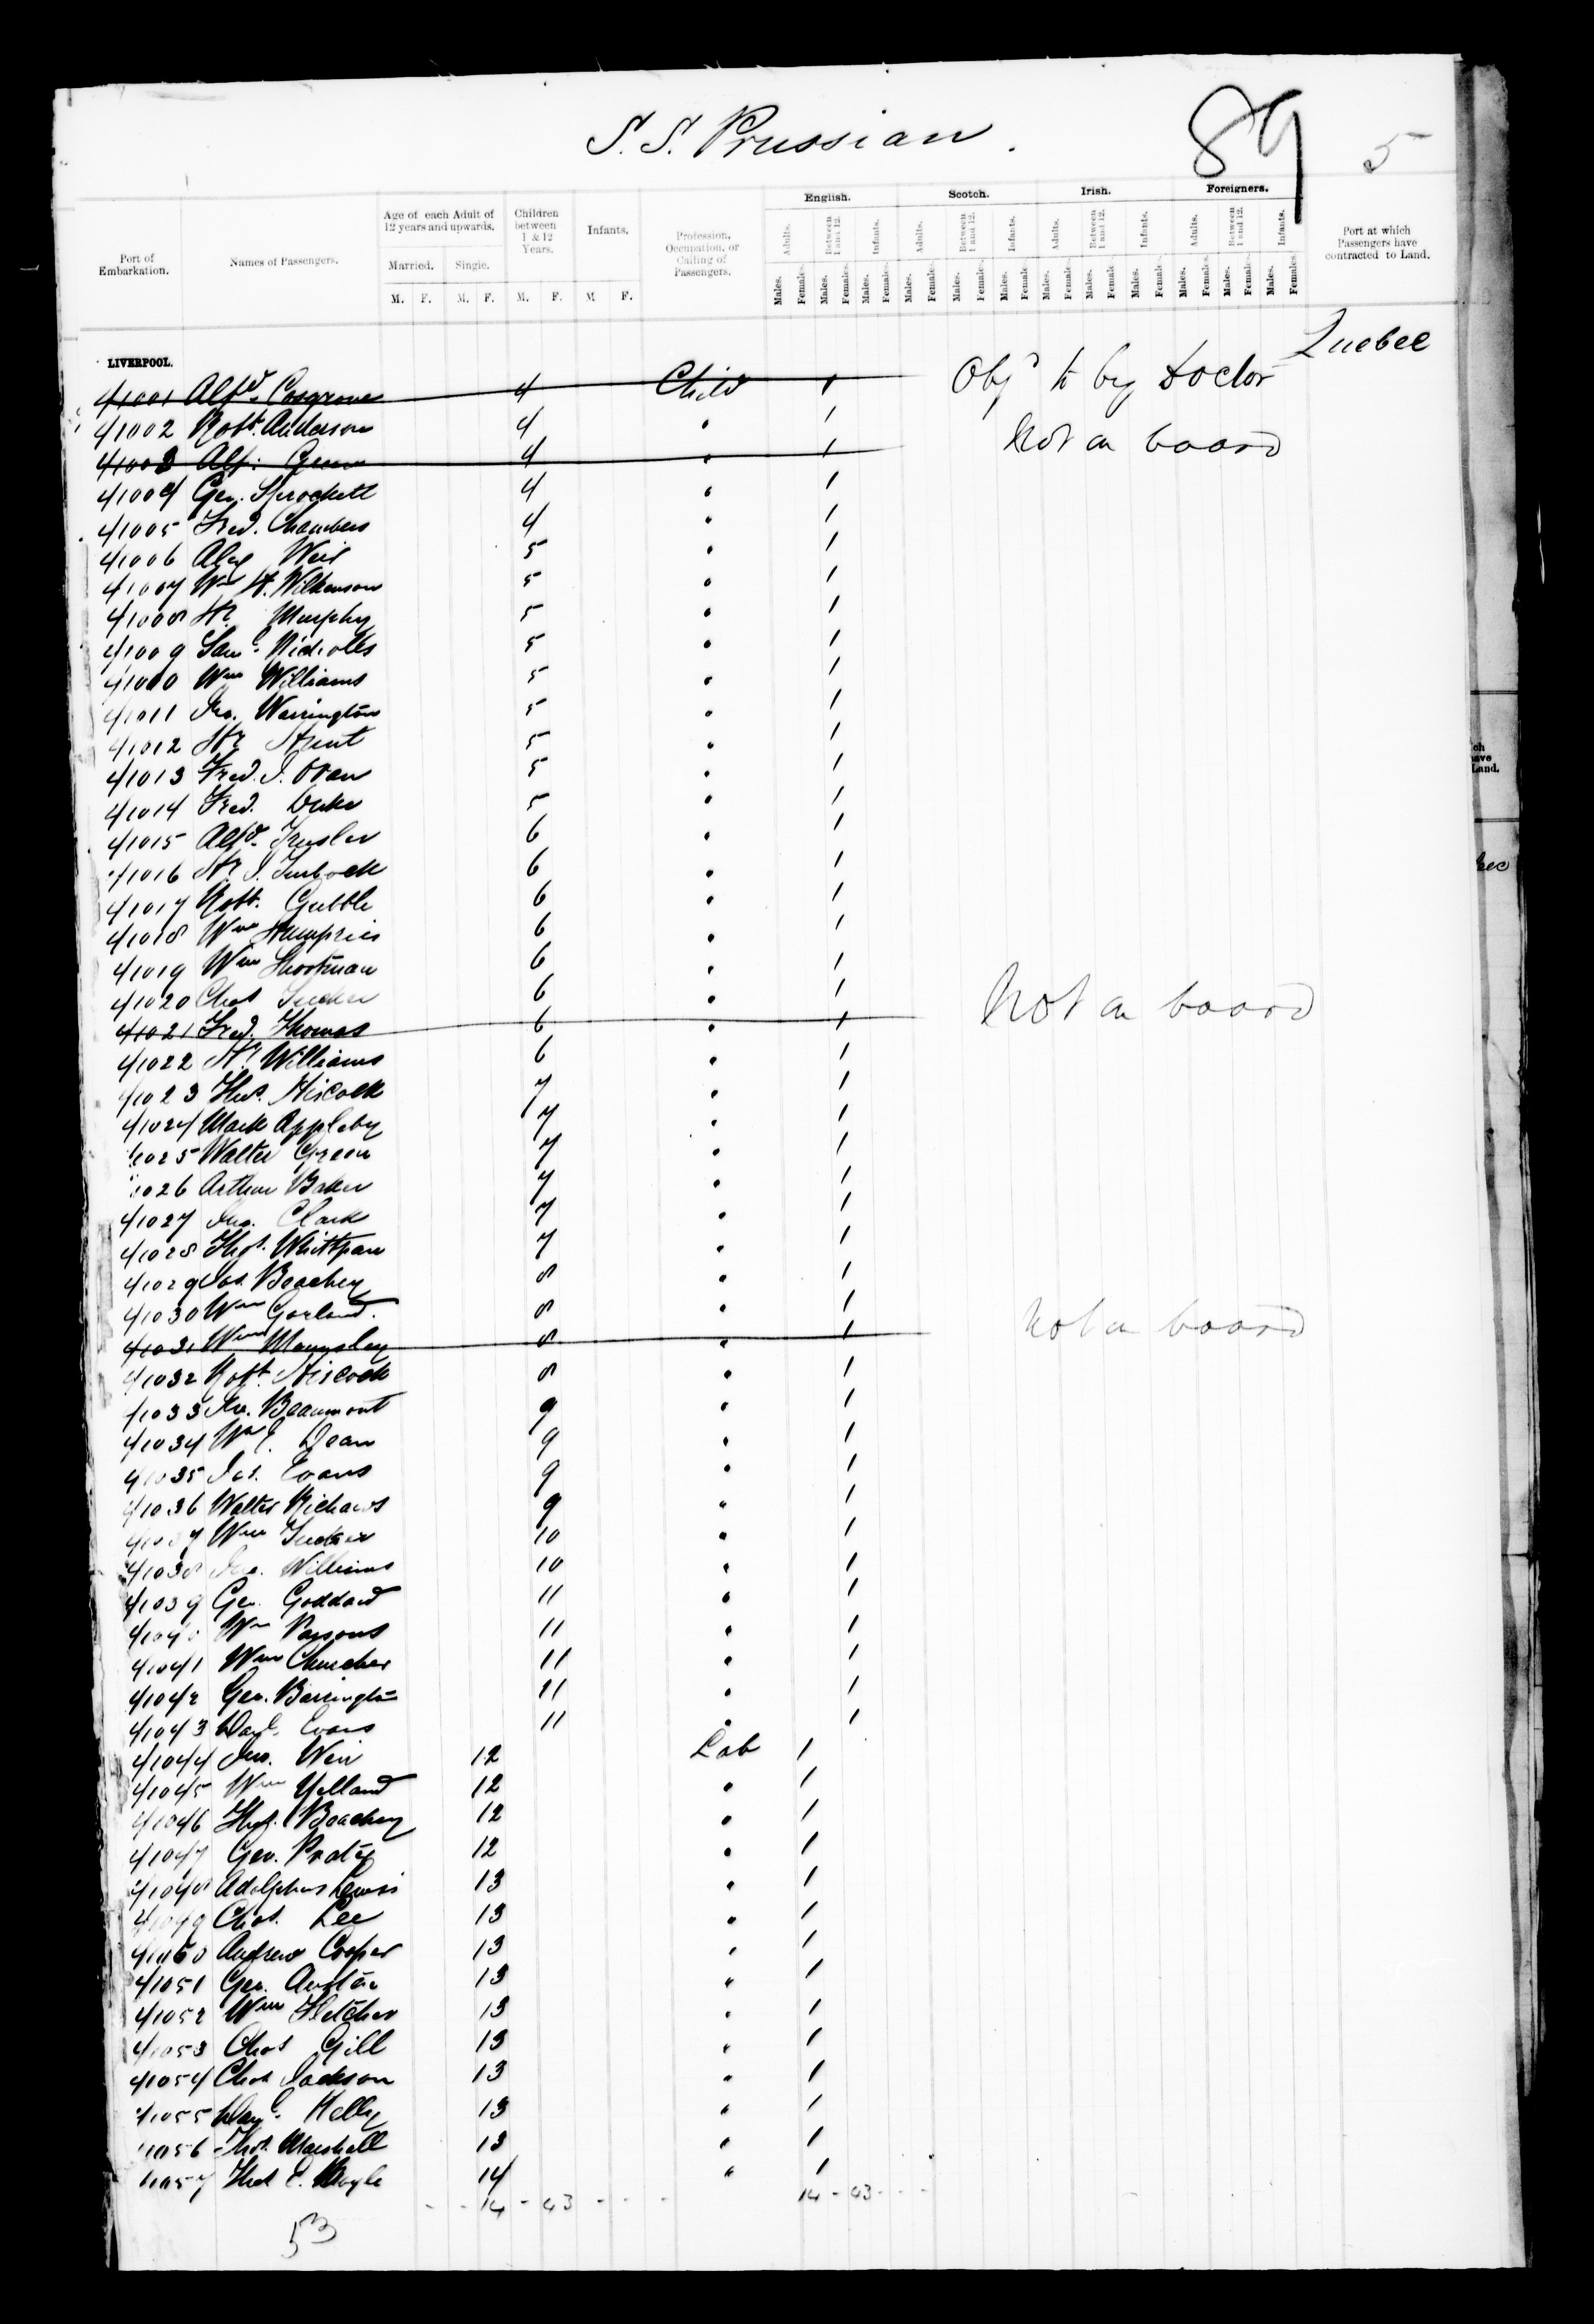 S. S. Prussian.
89
5
Port of Embarkation.
Names of Passengers.
Age of each Adult of 12 years and upwards.
Married.
Single.
M. F. M. F.
Children between 1 & 12 Years.
M. F.
Infants.
M F.
Profession, Occupation, or Calling of Passengers.
English.
Scotch.
Irish.
Foreigners.
Adults. Between 1 and 12. Infants. Adults. Between 1 and 12. Infants. Adults. Between 1 and 12. Infants. Adults. Between 1 and 12. Infants.
Males. Females. Males. Females. Males. Females. Males. Females. Males. Females. Males. Females. Males. Females. Males. Females. Males. Females. Males. Females. Males. Females. Males. Females.
Port at which Passengers have contracted to Land.
LIVERPOOL.
Quebec
41001 Alfd. Cosgrove 4 Child 1 Objd to by Doctor
41002 Robt. Anderson 4 " 1
41003 Alf. Green 4 " 1 Not on board
41004 Geo. Sprockett 4 " 1
41005 Fred. Chambers 4 " 1
41006 Alex Weir 5 " 1
41007 Wm H. Wilkenson 5 " 1
41008 Hy Murphy 5 " 1
41009 Saml. Nicholls 5 " 1
41010 Wm Williams 5 " 1
41011 Jno. Warrington 5 " 1
41012 Hy Hunt 5 " 1
41013 Fred. J. 5 " 1
41014 Fred. 5 " 1
41015 Alfd. 6 " 1
41016 Hy J. 6 " 1
41017 Robt. Gubble 6 " 1
41018 Wm Humpries 6 " 1
41019 Wm Shootman 6 " 1
41020 Chas Tucker 6 " 1
41021 Fred. Thomas 6 " 1 Not on board
41022 Hy Williams 6 " 1
41023 Thos. Hiscock 7 " 1
41024 Mark Appleby 7 " 1
41025 Walter Green 7 " 1
41026 Arthur Baker 7 " 1
41027 Jno. Clark 7 " 1
41028 Thos. 7 " 1
41029 Jas. Beachey 8 " 1
41030 Wm Garland. 8 " 1
41031 Wm 8 " 1 Not on board
41032 Robt. Hiscock 8 " 1
41033 Jno. Beaumont 9 " 1
41034 Wm E. Dean 9 " 1
41035 Jas. Evans 9 " 1
41036 Walter Richards 9 " 1
41037 Wm Tucker 10 " 1
41038 Jno. Williams 10 " 1
41039 Geo. Goddard 11 " 1
41040 Wm Parsons 11 " 1
41041 Wm Churcher 11 " 1
41042 Geo. Barrington 11 " 1
41043 Danl. Evans 11 " 1
41044 Jno. Weir 12 Lab 1
41045 Wm Yelland 12 " 1
41046 Thos. Beachey 12 " 1
41047 Geo. 12 " 1
41048 Adolphus Lewis 13 " 1
41049 Chas. Lee 13 " 1
41050 Andrew Cooper 13 " 1
41051 Geo. Austin 13 " 1
41052 Wm Fletcher 13 " 1
41053 Chas Gill 13 " 1
41054 Chas Jackson 13 " 1
41055 Danl. Kelly 13 " 1
41056 Thos. Marshall 13 " 1
41057 Thos E. Boyle 14 " 1
- - 14 - 43 - - - 14 - 43 - - -
53